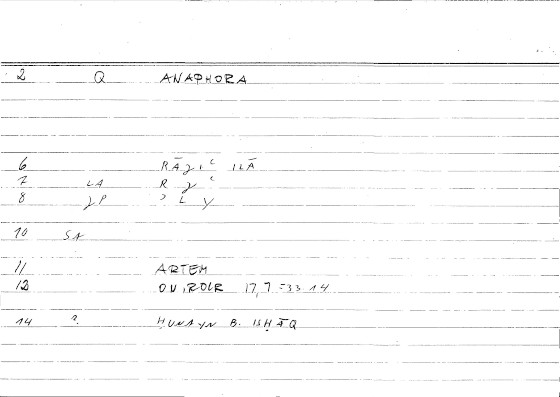 2 Q ANAPHORA
6 RĀǧiʿ ILĀ
7 LA R ǧ ʿ
8 ʾ L y
10 SA
11 ARTEM
12 17,7 = 33 14
14 ḤUNAYN B. ISḤĀQ